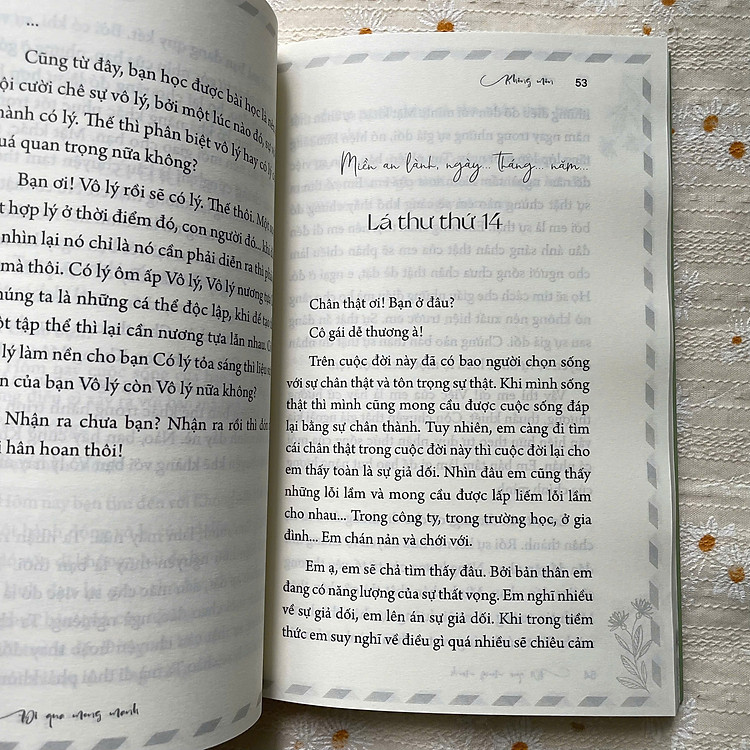 ...
Cũng từ đây, bạn học được bài học là
cười chê sự vô lý, bởi một lúc nào đó, sự
có lý. Thế thì phân biệt vô lý hay có lý
quan trọng nữa không?
Bạn ơi! Vô lý rồi sẽ có lý. Thế thôi. Một
hợp lý ở thời điểm đó, con người đó... khi
nhìn lại nó chỉ là nó cần phải diễn ra thì
mà thôi. Có lý ôm ấp Vô lý, Vô lý nương
chúng ta là những cá thể độc lập, khi để
tập thể thì lại cần nương tựa lẫn nhau.
lý làm nền cho bạn Có lý tỏa sáng thì liệu
của bạn Vô lý còn Vô lý nữa không?
Nhận ra chưa bạn? Nhận ra rồi thì
hân hoan thôi!
Đi qua mong manh
53
Miền an lành, ngày... tháng... năm...
Lá thư thứ 14
Chân thật ơi! Bạn ở đâu?
Cô gái dễ thương à!
Trên cuộc đời này đã có bao người chọn sống
với sự chân thật và tôn trọng sự thật. Khi mình sống
thật thì mình cũng mong cầu được cuộc sống đáp
lại bằng sự chân thành. Tuy nhiên, em càng đi tìm
cái chân thật trong cuộc đời này thì cuộc đời lại cho
em thấy toàn là sự giả dối. Nhìn đâu em cũng thấy
những lỗi lầm và mong cầu được lấp liếm lỗi lầm
cho nhau... Trong công ty, trong trường học, ở gia
đình... Em chán nản và chới với.
Em ạ, em sẽ chả tìm thấy đâu. Bởi bản thân em
đang có năng lượng của sự thất vọng. Em nghĩ nhiều
về sự giả dối, em lên án sự giả dối. Khi trong tiềm
thức em suy nghĩ về điều gì quá nhiều sẽ chiêu cảm